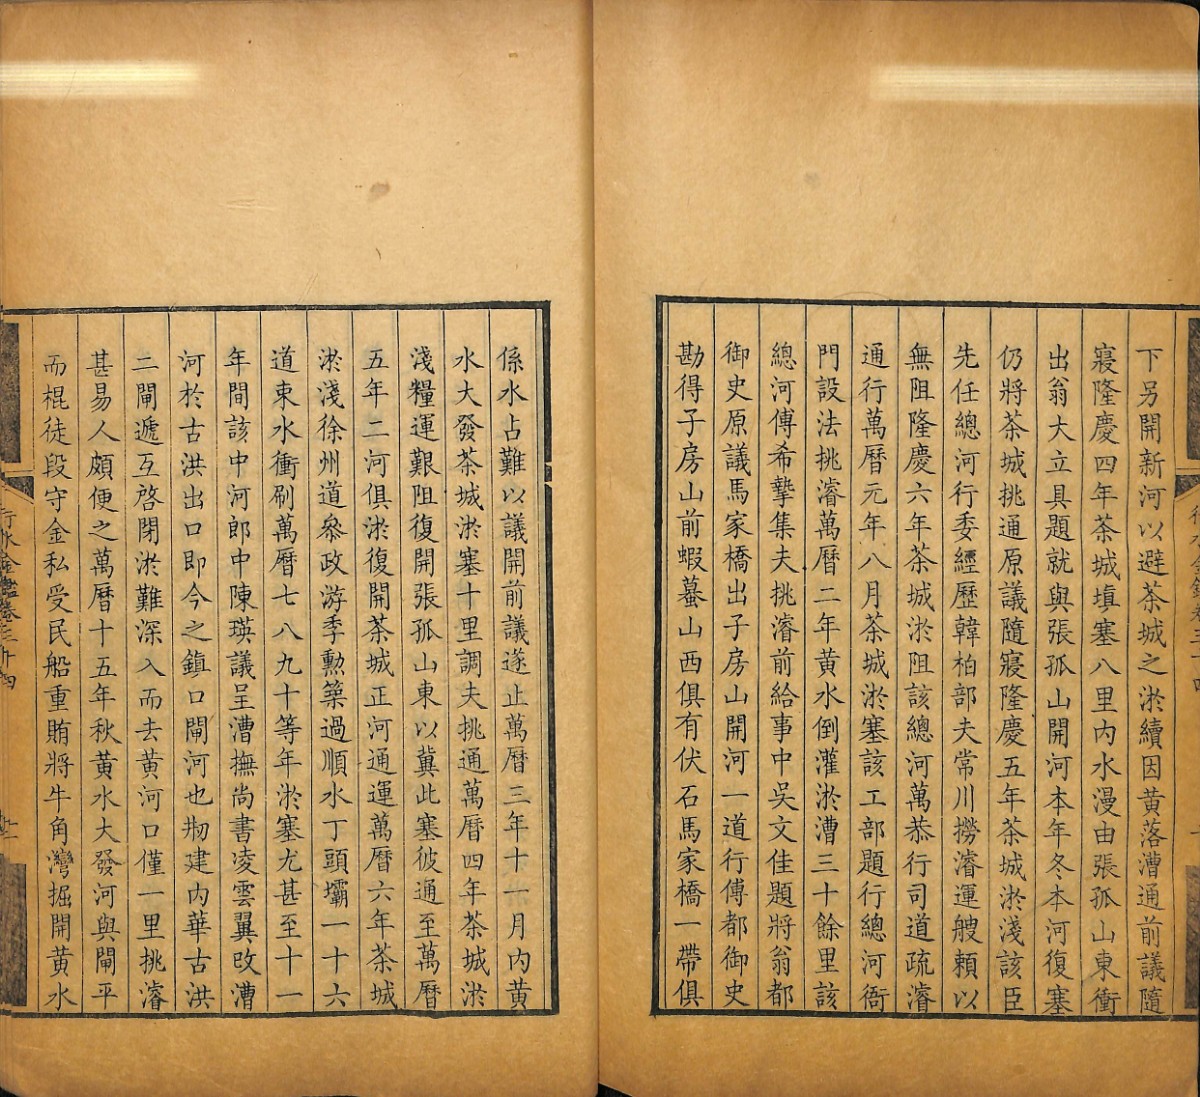 下另開新河以避茶城之淤續因黃落漕通前議隨
寢隆慶四年茶城填塞八里內水漫由張孤山東衝
出翁大立具題就與張孤山開河本年冬本河復塞
仍將茶城挑通原議隨寢隆慶五年茶城淤淺該臣
先任總河行委經歷韓柏部夫常川撈濬運艘賴以
無阻隆慶六年茶城淤阻該總河萬恭行司道疏濬
通行萬曆元年八月茶城淤塞該工部題行總河衙
門設法挑濬萬曆二年黃水倒灌淤漕三十餘里該
總河傅希摯集夫挑濬前給事中吳文佳題將翁都
御史原議馬家橋出子房山開河一道行傅都御史
勘得子房山前蝦蟇山西俱有伏石馬家橋一帶俱
係水占難以議開前議遂止萬曆三年十一月內黃
水大發茶城淤塞十里調夫挑通萬曆四年茶城淤
淺糧運艱阻復開張孤山東以冀此塞彼通至萬曆
五年二河俱淤復開茶城正河通運萬曆六年茶城
淤淺徐州道叅政游季勳築過順水丁頭壩一十六
道東水衝刷萬曆七八九十等年淤塞尤甚至十一
年間該中河郎中陳瑛議呈漕撫尚書凌雲翼改漕
河於古洪出口即今之鎮口閘河也剏建內華古洪
二閘遞互啓閉淤難深入而去黃河口僅一里挑濬
甚易人頗便之萬曆十五年秋黃水大發河與閘平
而棍徒段守金私受民船重賄將牛角灣掘開黃水
行水金鑑卷三十四